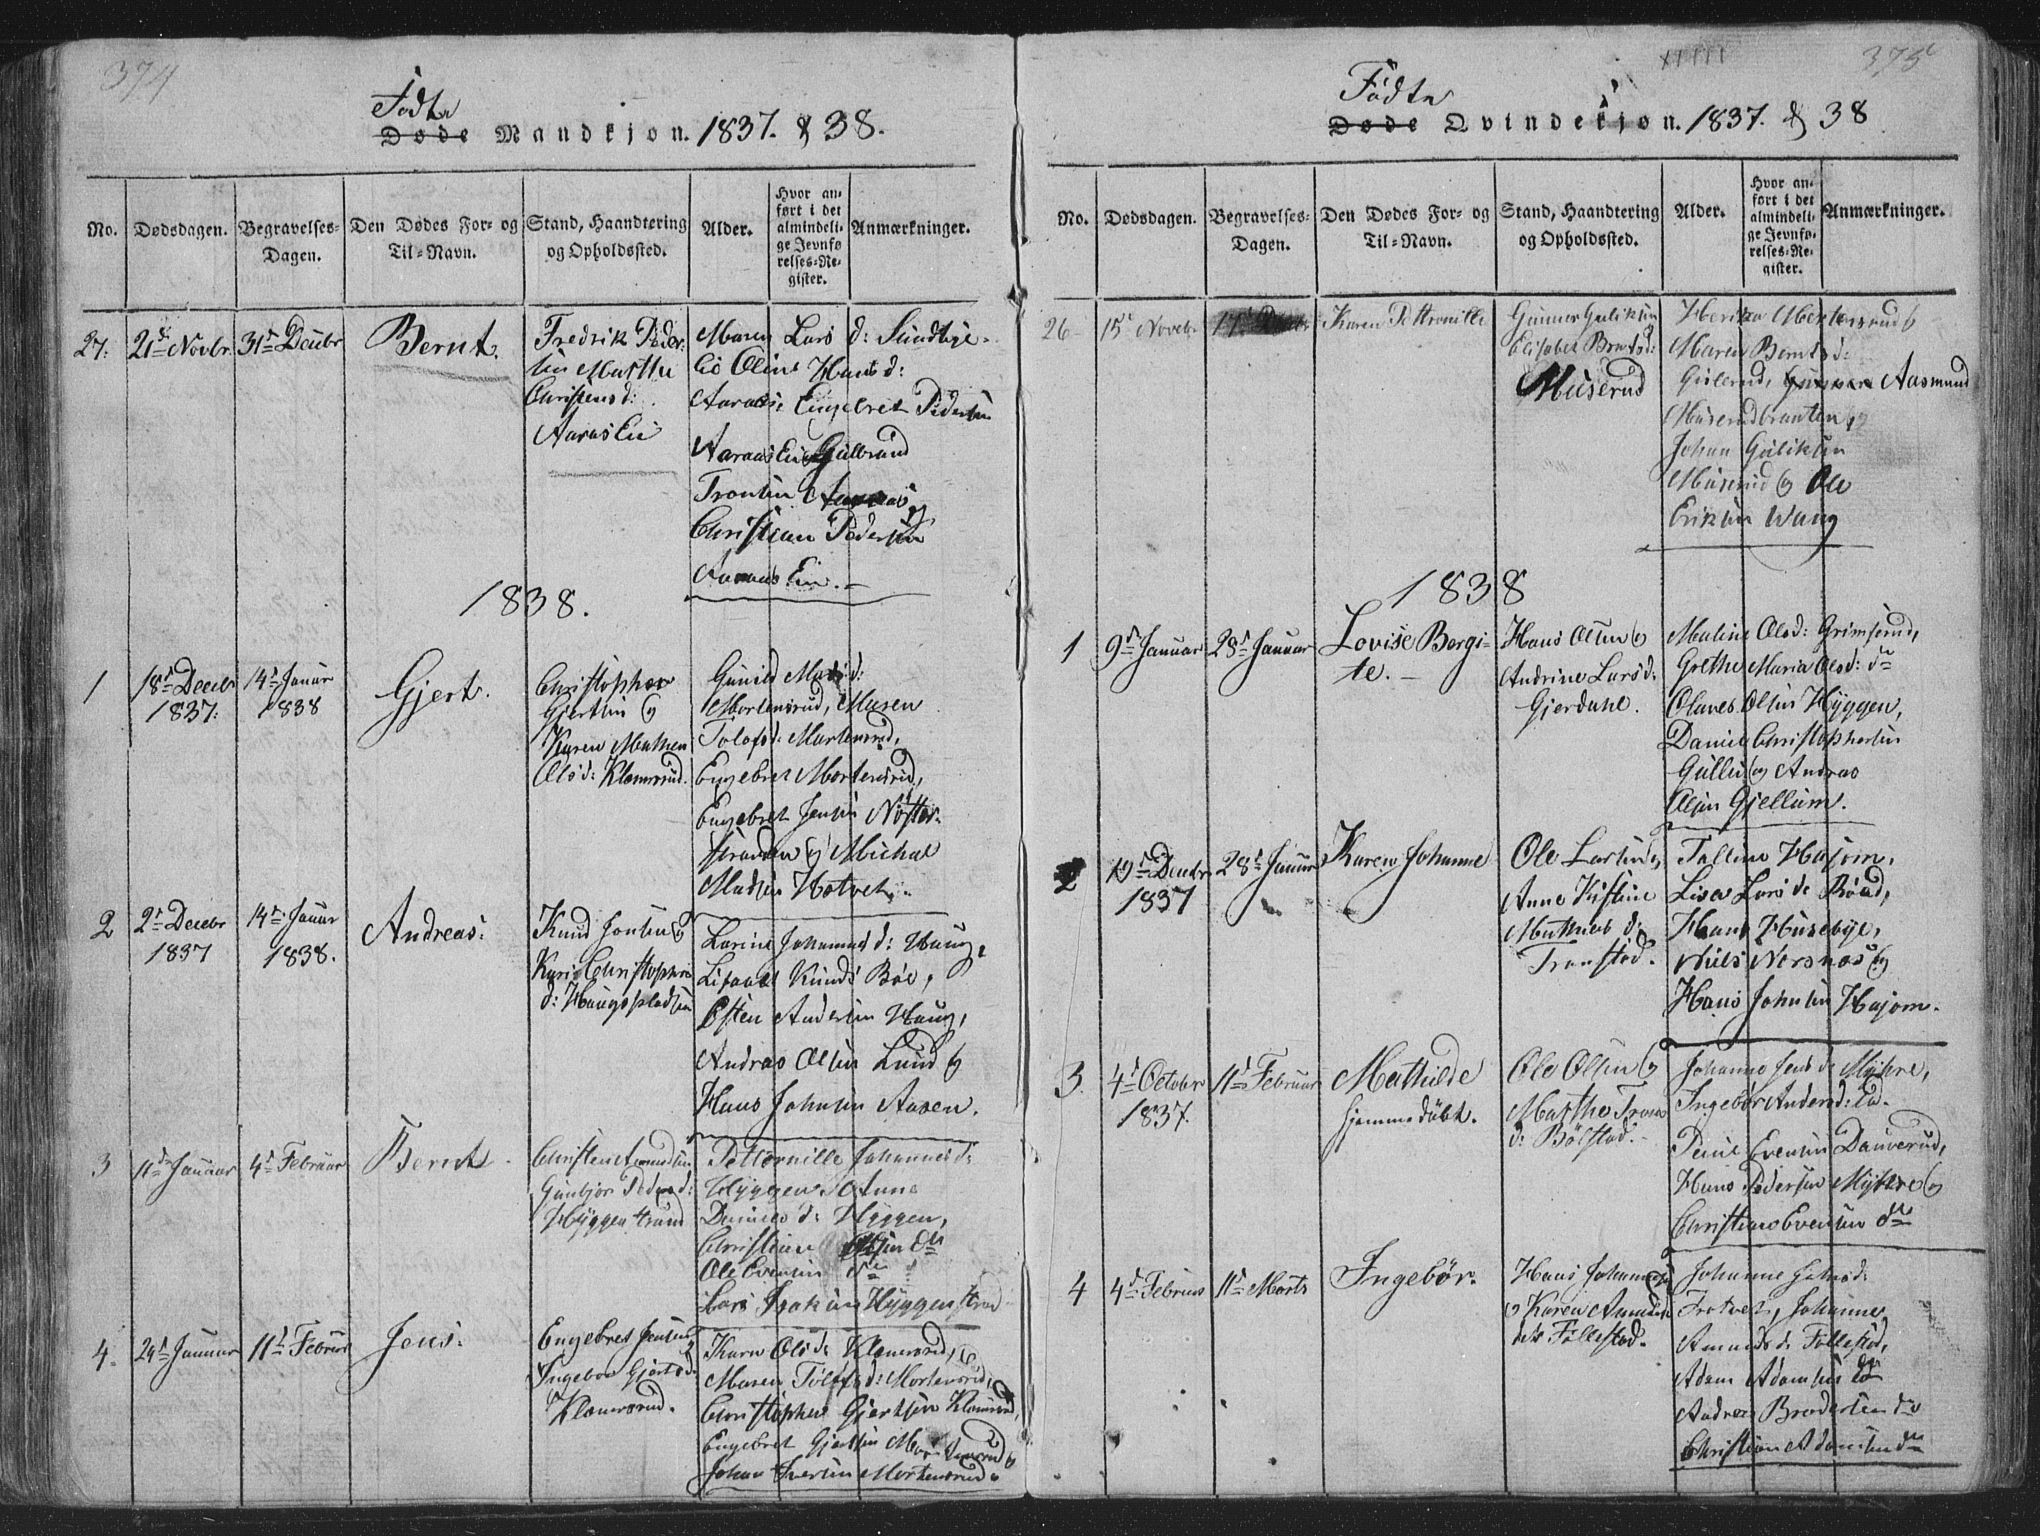 374
Födte
Døde Mandkjøn. 1837. & 38.
No. Dødsdagen. Begravelses-Dagen. Den Dødes For- og Til-Navn. Stand, Haandtering og Opholdssted. Alder. Hvor anført i det almindelige Jevnførelses-Register. Anmærkninger.
27. 21de Novbr 31te Decbr Bernt.
Fredrik Peder-
sen Marthe
Christensd:
Aaras Eie
Maren Lars d: Sundbye
Olin Hansd:
Aaraas, Engebret Pedersen
Aaraas Eie Gulbrand
Tronsen Aaraas og
Christian Pedersen
Aaraas Eie.
1838.
1 18de Decbr 14de Januar Gjert.
1837. 1838
Christopher
Gjertsen og
Karen Mathea
Olsd: Klemsrud.
Gunild Madsd:
Mortensrud, Maren
Tolofsd: Mortensrud,
Engebret Mortensrud,
Engebret Jensen Nøster-
stranden og Michal
Madsen Hotvet.
2 2de Decbr 14de Januar Andreas.
1837 1838.
Knud Jonsen og
Kari Christopher
d: Haugspladsen
Larine Johannesd: Haug,
Knuds Bøe,
Østen Andersen Haug,
Andreas Olsen Lund og
Hans Johnsen Aasen.
3 11de Januar 4de Februar Bernt
Christen Amundsen
Gunbjør Pedersd:
Hyggenstrand
Petternille Johannesd:
Hyggen, Anne
Daniels d: Hyggen,
Christian Olsen do
Ole Evensen do
Lars Isaksen Hyggenstrand
4. 24de Januar 11te Februar Jens.
Engebret Jensen
Ingebor Gjertsd:
Klemsrud.
Karen Olsd: Klemsrud,
Maren Tolofsd: Mortensrud,
Christopher Gjertsen Klemsrud,
Engebret Gjertsen Mortensrud og
Johan Iversen Mortensrud.
375
Födte
Døde Qvindekjøn. 1837. & 38
No. Dødsdagen. Begravelses-Dagen. Den Dødes For- og Til-Navn. Stand, Haandtering og Opholdssted. Alder. Hvor anført i det almindelige Jevnførelses-Register. Anmærkninger.
26 15de Novbr Karen Pettronille
Gunner Guliksen
Elisabet Berntsd:
Muserud
Maren Berntsd:
Gullerud, Aasmund
Muserudbraaten,
Johan Guliksen
Muserud og Ole
Eriksen Wang
1838
1 9de Januar 28de Januar Lovise Bergi-
te.
Hans Olsen og
Andrine Larsd:
Gjerdahl.
Maline Olsd: Grimsrud,
Grethe Maria Olsd: do
Olaves Olsen Hyggen,
Daniel Christophersen
Gullei og Andreas
Olsen Gjellum.
2 19de Decbr 28de Januar Karen Johanne
1837
Ole Larsen og
Anne Kistine
Mathias d:
Transtad.
Talline Højom,
Lisa Larsd: Böød,
Hans Husebye,
Niels Nersnæs og
Hans Johnsen Højom.
3. 4de October 11te Februar Mathilde
1837. hjemmedöbt.
Ole Olsen og
Marthe Trons
d: Bölstad.
Johanne Jensd: Myhre,
Ingebör Andersd: do.
Paul Evensen Dauverud,
Hans Pedersen Myhre og
Christian Evensen do
4 4de Februar 11te Marts Ingebör.
Hans Johannesen
og Karen Amunds
d: Föllestad.
Johanne
Trotvet, Johanne
Amundsd: Föllestad,
Adam Adamsen do
Andreas Brodersen do
Christian Adamsen do